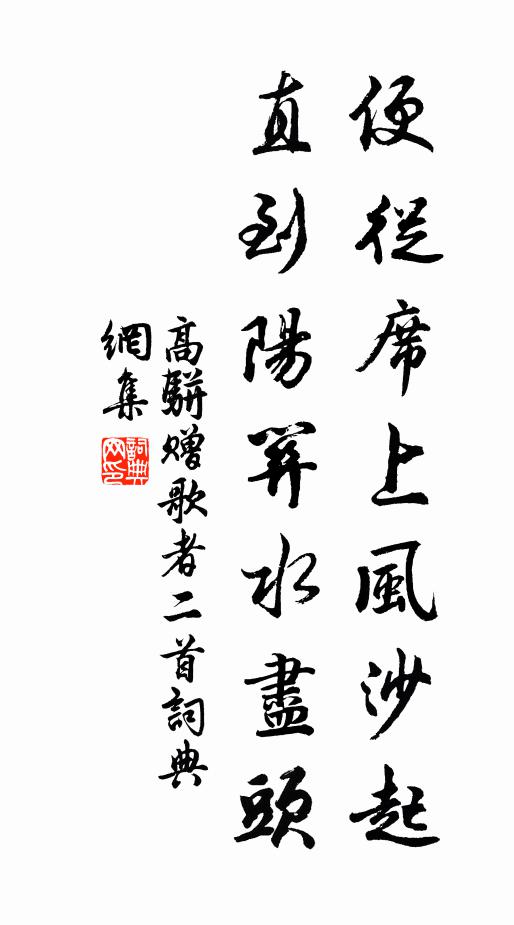 便從席上風沙起
直到陽關水盡頭
高駢贈歌者二首詞典
網集
詞典網印